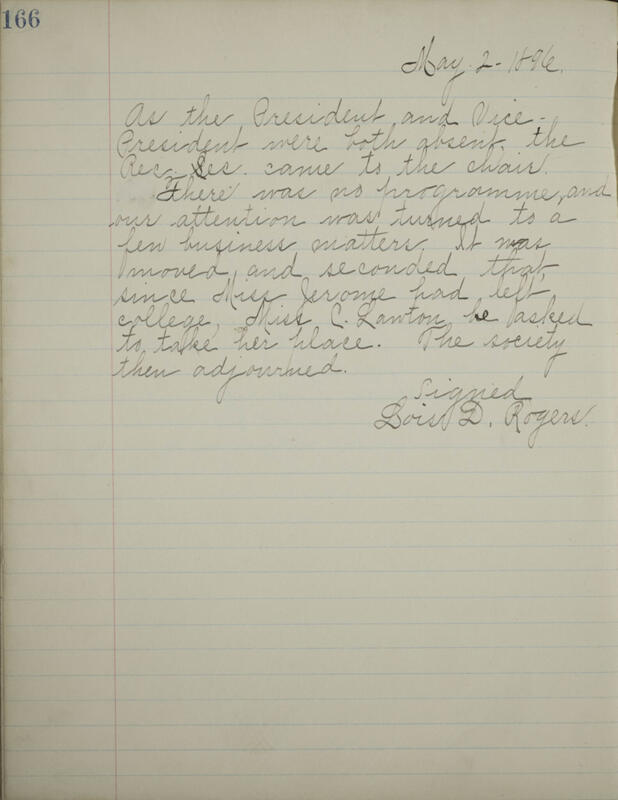 166
May. 2 - 1896.
As the President and Vice-
President were both absent, the
Rec. Sec. came to the chair.
There was no programme, and
our attention was turned to a
few business matters. It was
moved, and seconded, that,
since Miss Jerome had left
college, Miss C. Lawton be asked
to take her place. The society
then adjourned.
Signed
Lois D. Rogers.